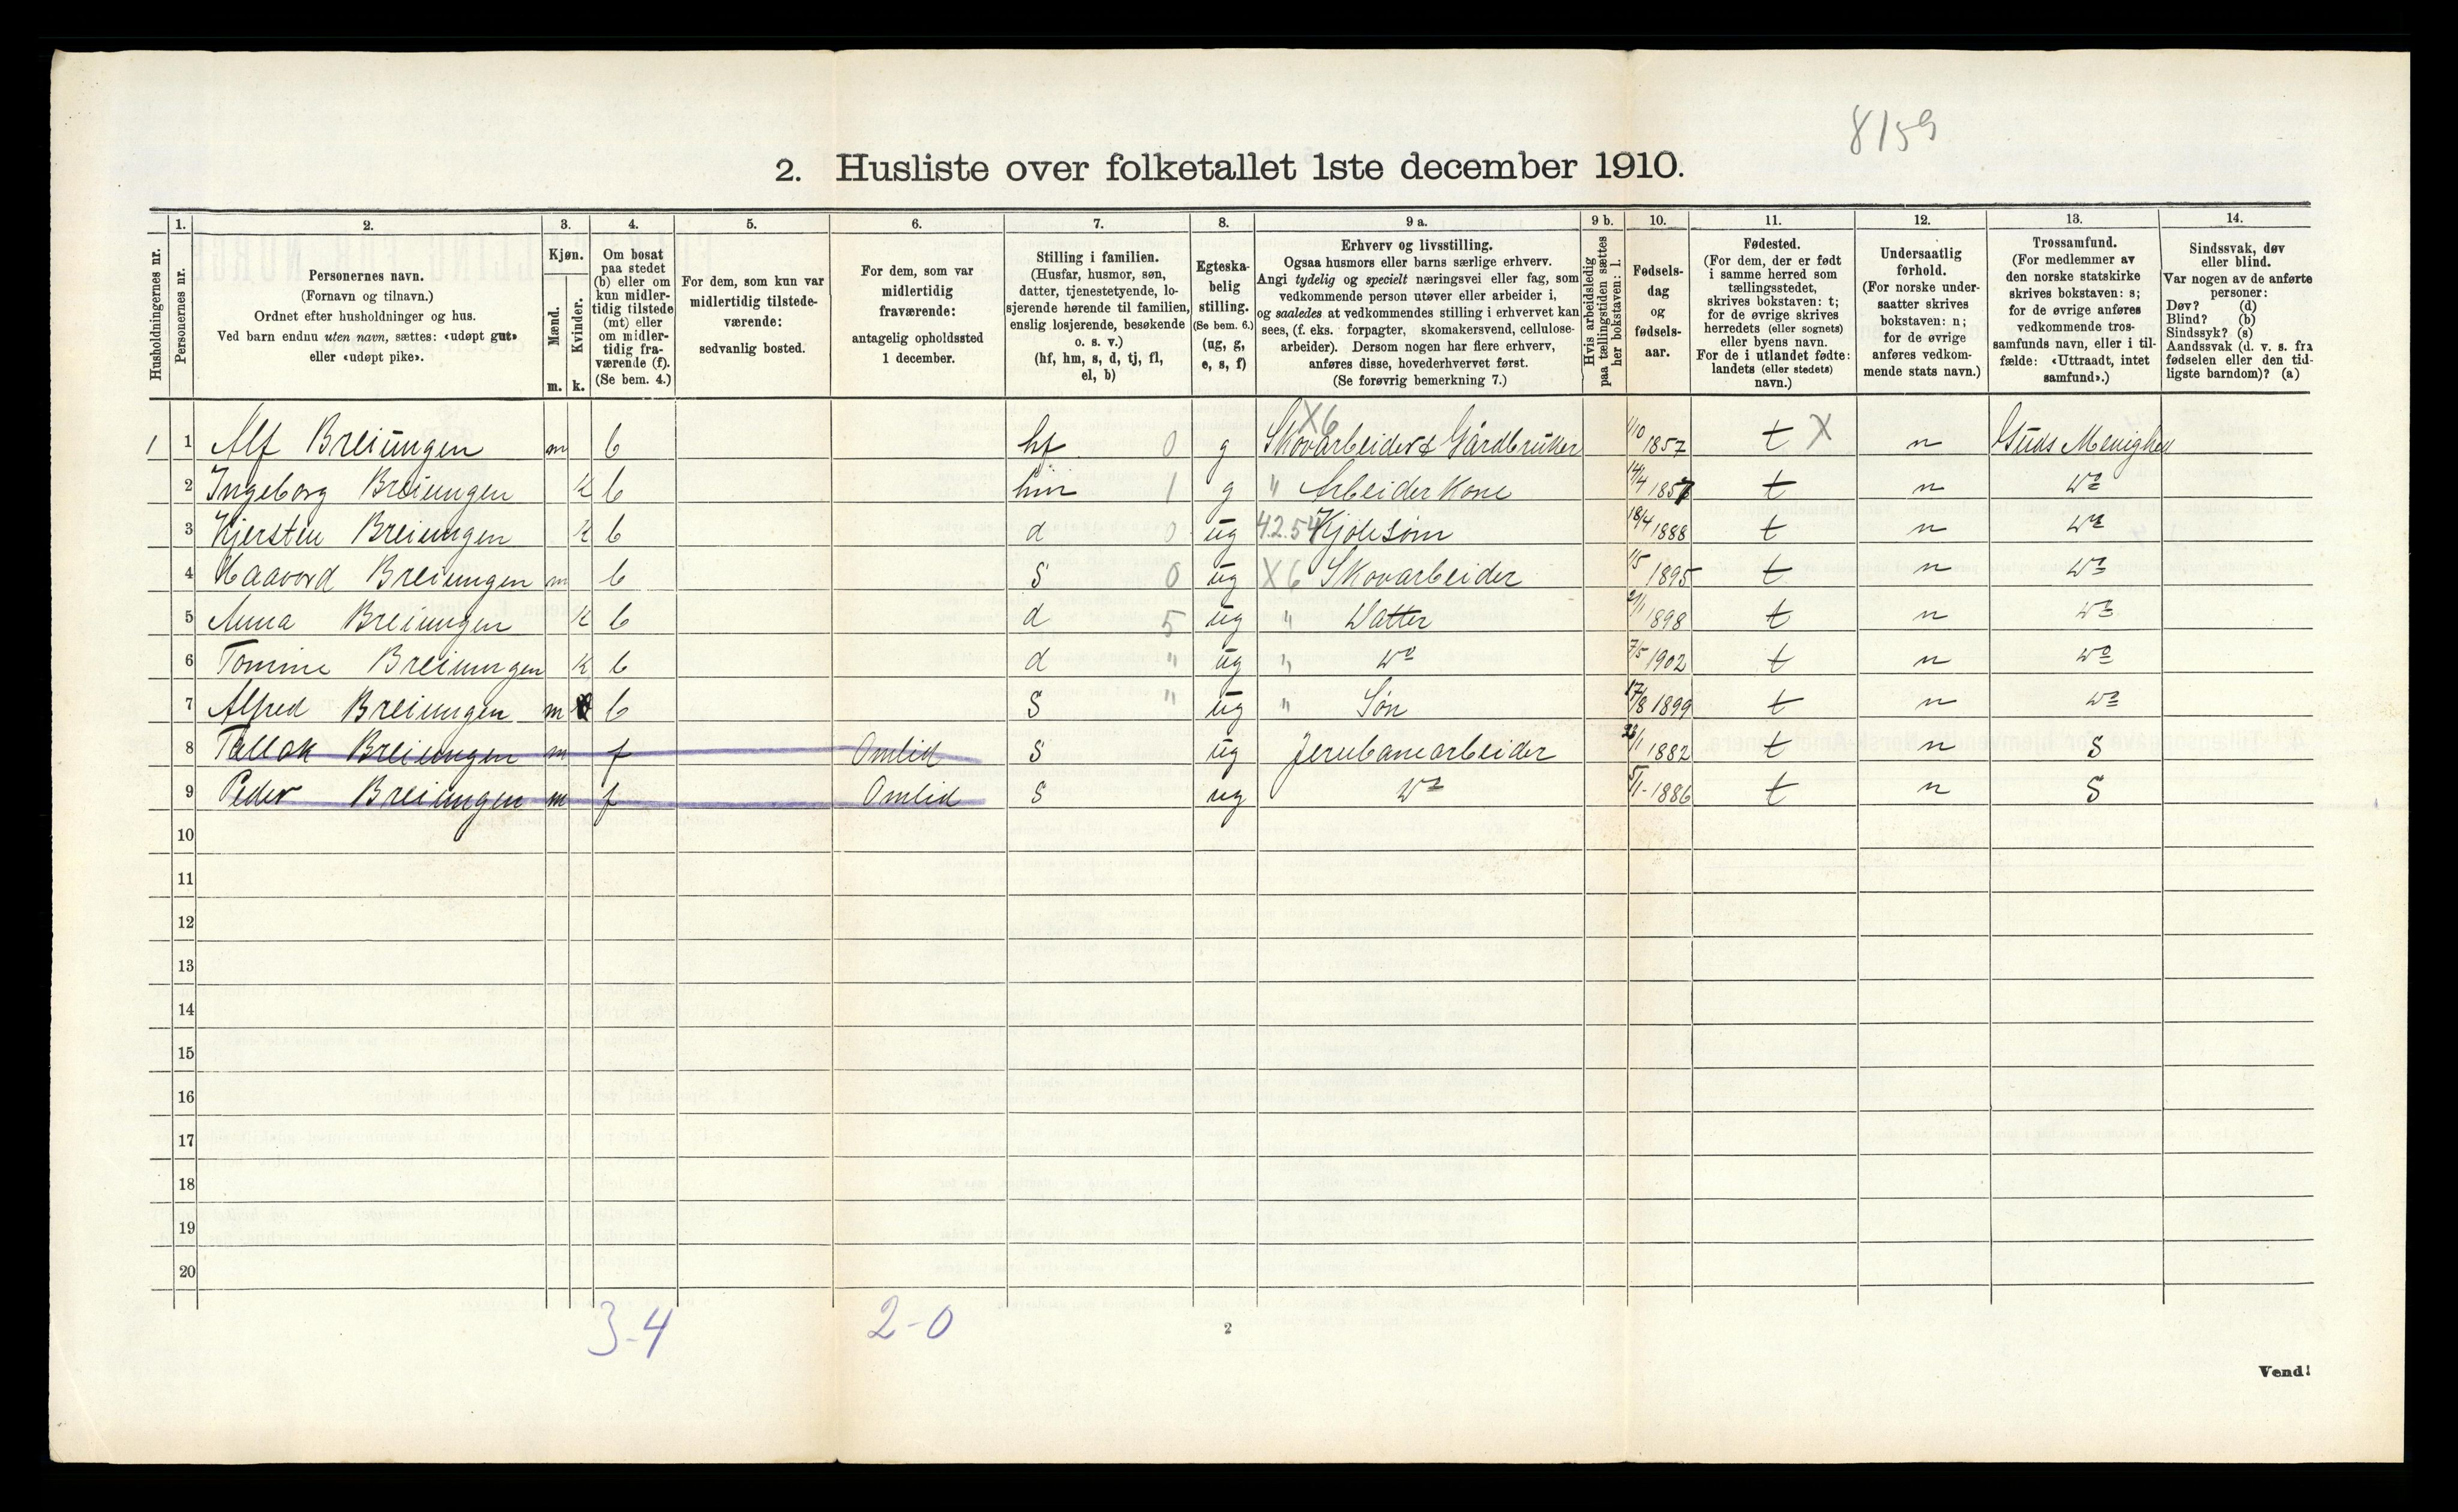 8159
2. Husliste over folketallet 1ste december 1910.
Husholdningernes nr.
1.
Personernes nr.
2.
Personernes navn.
(Fornavn og tilnavn.)
Ordnet efter husholdninger og hus.
Ved barn endnu uten navn, sættes: «udøpt gut»
eller «udøpt pike».
3.
Kjøn.
Mænd.
m.
Kvinder.
k.
4.
Om bosat
paa stedet
(b) eller om
kun midler-
tidig tilstede
(mt) eller
om midler-
tidig fra-
værende (f).
(Se bem. 4.)
5.
For dem, som kun var
midlertidig tilstede-
værende:
sedvanlig bosted.
6.
For dem, som var
midlertidig
fraværende:
antagelig opholdssted
1 december.
7.
Stilling i familien.
(Husfar, husmor, søn,
datter, tjenestetyende, lo-
sjerende hørende til familien,
enslig losjerende, besøkende
o. s. v.)
(hf, hm, s, d, tj, fl,
el, b)
8.
Egteska-
belig
stilling.
(Se bem. 6.)
(ug, g,
e, s, f)
9 a.
Erhverv og livsstilling.
Ogsaa husmors eller barns særlige erhverv.
Angi tydelig og specielt næringsvei eller fag, som
vedkommende person utøver eller arbeider i,
og saaledes at vedkommendes stilling i erhvervet kan
sees, (f. eks. forpagter, skomakersvend, cellulose-
arbeider). Dersom nogen har flere erhverv,
anføres disse, hovederhvervet først.
(Se forøvrig bemerkning 7.)
9 b.
Hvis arbeidsledig
paa tællingstiden sættes
her bokstaven: l.
10.
Fødsels-
dag
og
fødsels-
aar.
11.
Fødested.
(For dem, der er født
i samme herred som
tællingsstedet,
skrives bokstaven: t;
for de øvrige skrives
herredets (eller sognets)
eller byens navn.
For de i utlandet fødte:
landets (eller stedets)
navn.)
12.
Undersaatlig
forhold.
(For norske under-
saatter skrives
bokstaven: n;
for de øvrige
anføres vedkom-
mende stats navn.)
13.
Trossamfund.
(For medlemmer av
den norske statskirke
skrives bokstaven: s;
for de øvrige anføres
vedkommende tros-
samfunds navn, eller i til-
fælde: «Uttraadt, intet
samfund».)
14.
Sindssvak, døv
eller blind.
Var nogen av de anførte
personer:
Døv? (d)
Blind? (b)
Sindssyk? (s)
Aandssvak (d. v. s. fra
fødselen eller den tid-
ligste barndom)? (a)
X6
1 1 Alf Breiungen m b hf 0 g Skovarbeider & Gårdbruker 1/10 1857 t X n Guds Menighed
2 Ingeborg Breiungen k b hm 1 g " Arbeider Kone 14/4 1857 t n Do
3 Kjersten Breiungen k b d 0 ug 42.54 Kjolesøm 18/4 1888 t n Do
4 Haavord Breiungen m b s 0 ug X6 Skovarbeider 1/5 1895 t n Do
5 Anna Breiungen k b d 5 ug " Datter 1898 t n Do
6 Tomine Breiungen k b d " ug " Do 7/5 1902 t n Do
7 Alfred Breiungen m b s " ug " Søn 17/8 1899 t n Do
8 Tallak Breiungen m f Omlid s ug Jernbanearbeider 1882 t n S
9 Peder Breiungen m f Omlid s ug Do 5/1-1886 t n S
10
11
12
13
14
15
16
17
18
19
20
3-4 2-0
2
Vend!